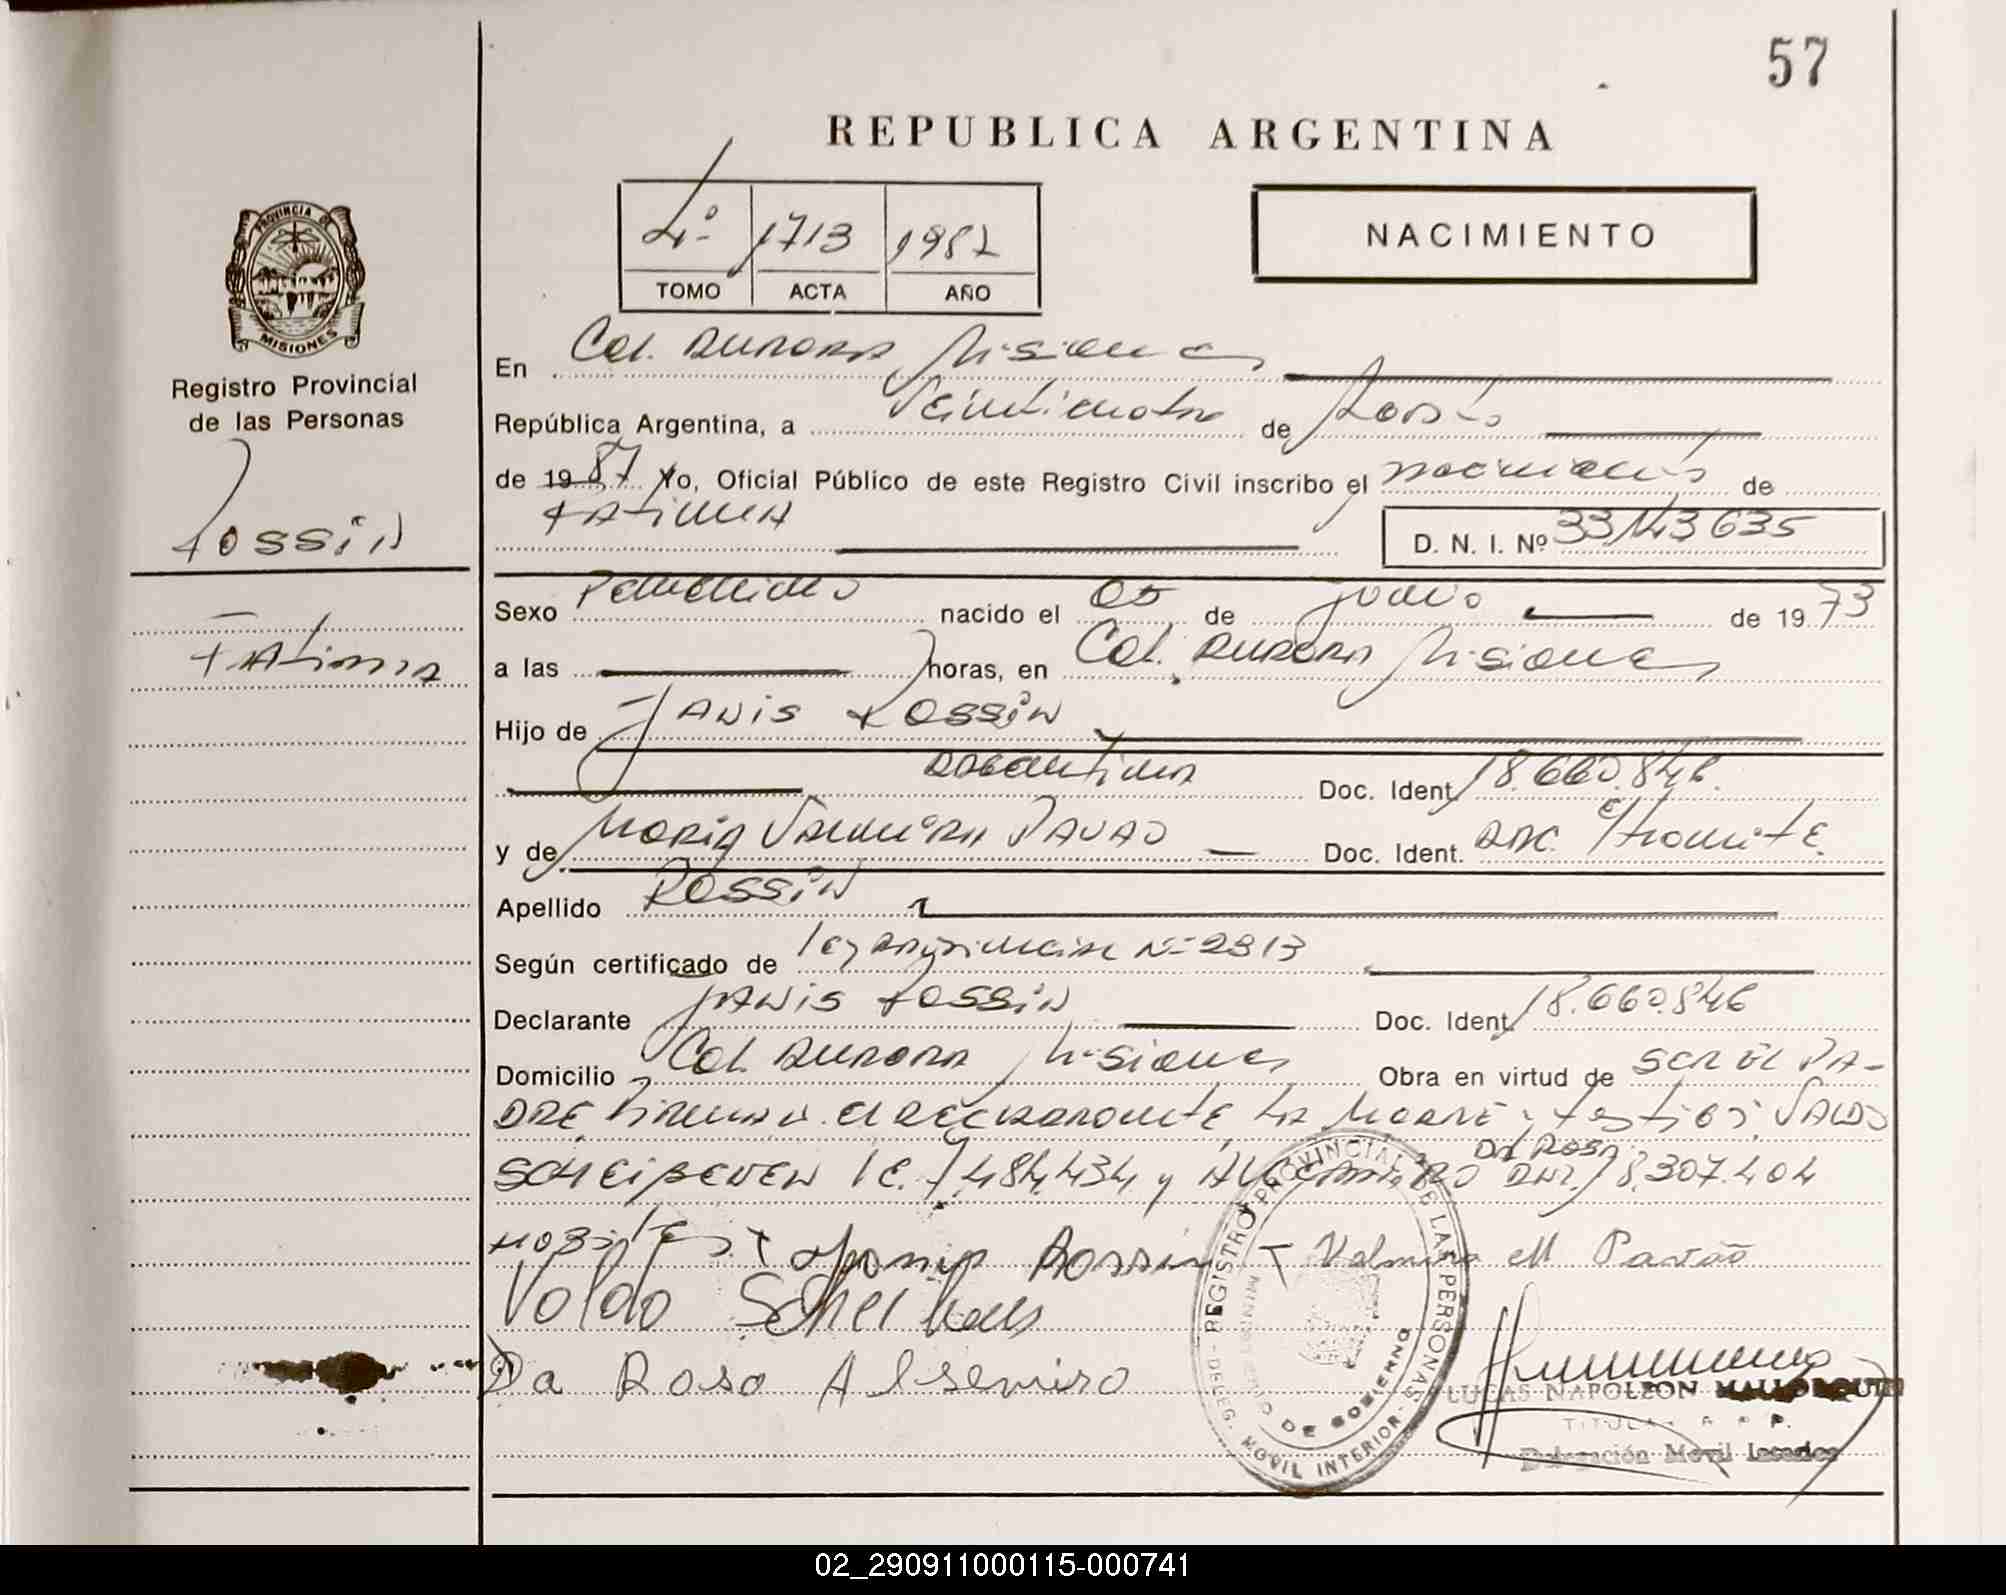 57
REPUBLICA ARGENTINA
4º 1713 1987
TOMO ACTA AÑO
NACIMIENTO
PROVINCIA DE MISIONES
Registro Provincial
de las Personas
Rossin
Fatima
En Col. Aurora Misiones
República Argentina, a Veinticuatro de Agosto
de 1987 Yo, Oficial Público de este Registro Civil inscribo el nacimiento de
Fatima
D. N. I. Nº 33143635
Sexo Femenino nacido el 05 de Junio de 1973
a las horas, en Col. Aurora Misiones
Hijo de Janis Rossin
Argentina Doc. Ident. 18.660.846.
y de Maria Valmira Pavao Doc. Ident. en tramite
Apellido Rossin
Según certificado de ley Nº 2313
Declarante Janis Rossin Doc. Ident. 18.660.846
Domicilio Col Aurora Misiones Obra en virtud de ser el pa-
dre Firman el declarante, la Madre y testigos Valdo
Da Rosa
Scheibener 7.484.434 y DNI. 18.307.404
habiles
Rossin Valmira M Pavão
Valdo
Da Rosa Alsemiro
REGISTRO PROVINCIAL DE LAS PERSONAS
DELEG. MOVIL INTERIOR
MINISTERIO DE GOBIERNO
LUCAS NAPOLEON
TITULAR R. P. P.
Delegación Movil
02_290911000115-000741